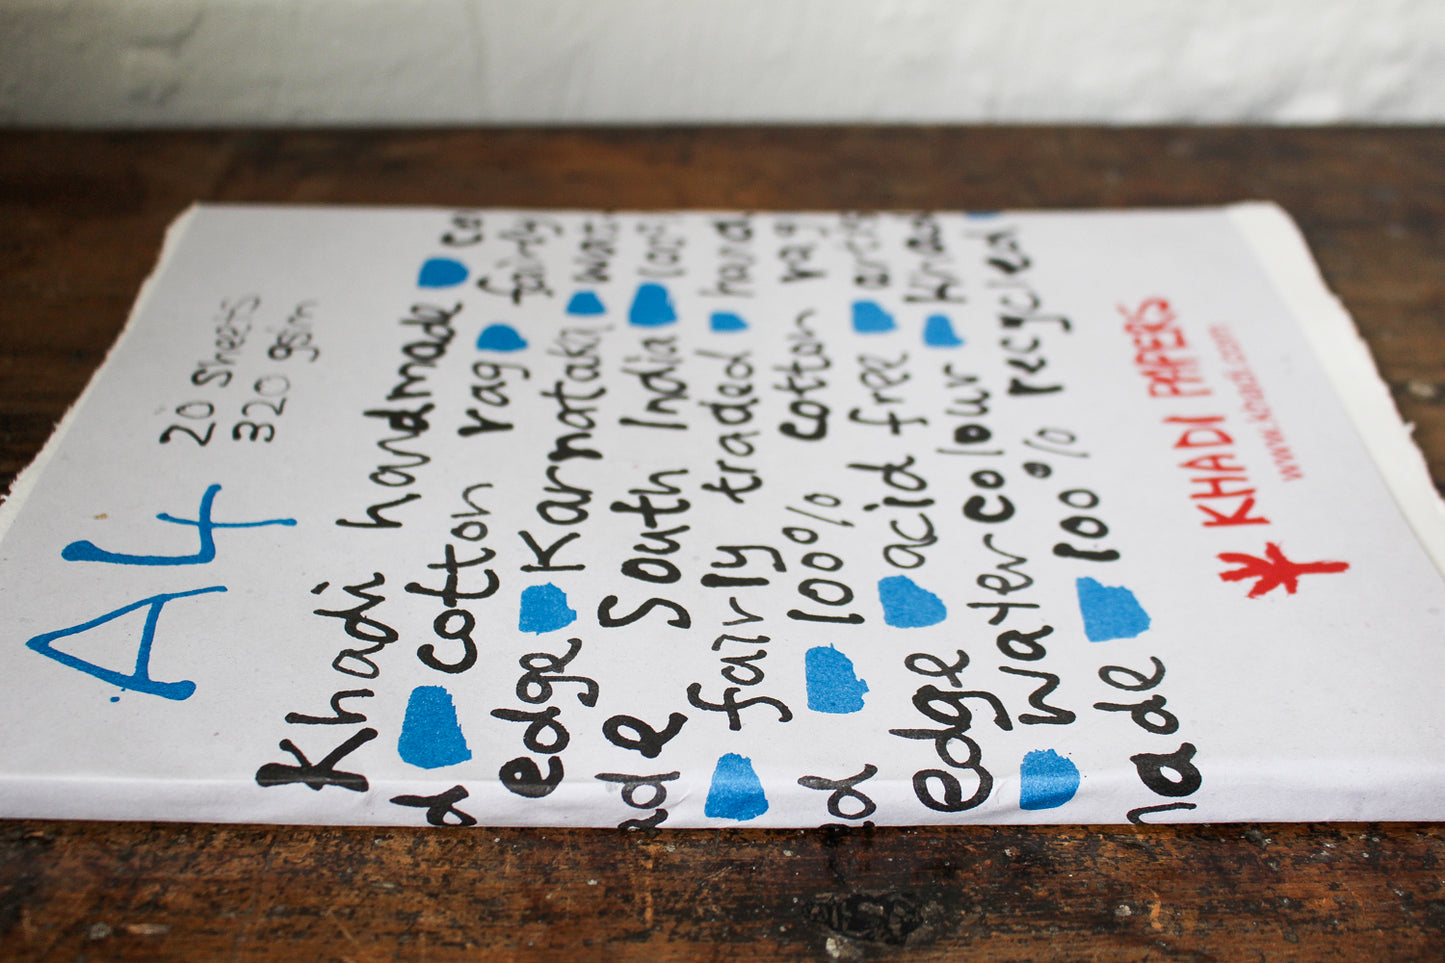 A4
20 sheets
320 gsm
Khadi handmade co
d cotton rag fairly
edge Karnataka wat
ade South India cot
fairly traded hand
d 100% cotton rag
edge acid free
watercolour Khad
made 100% recycled
KHADI PAPERS
www.khadi.com